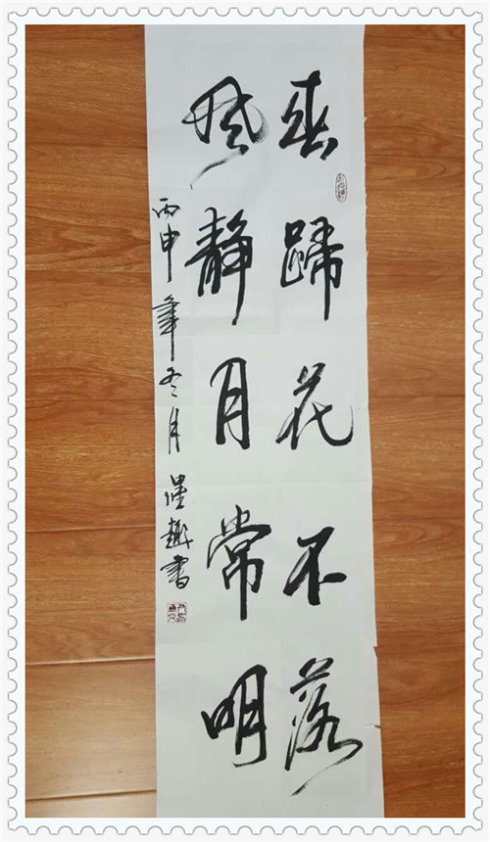 春歸花不落
風靜月常明
丙申年冬月 書